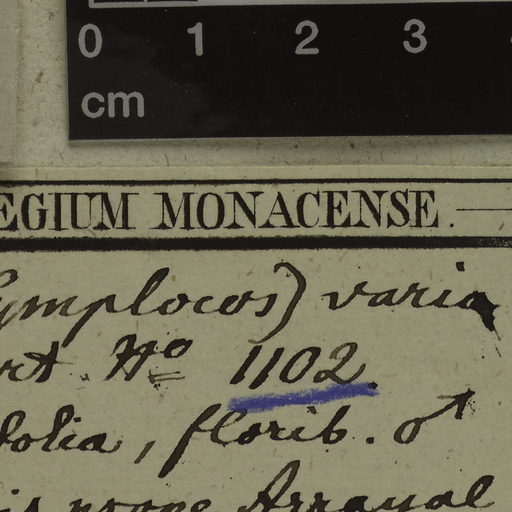 0 1 2 3
cm
EGIUM MONACENSE.
ymplocos) varia
rt. No 1102.
folia, florib. ♂
is prope Arrayal